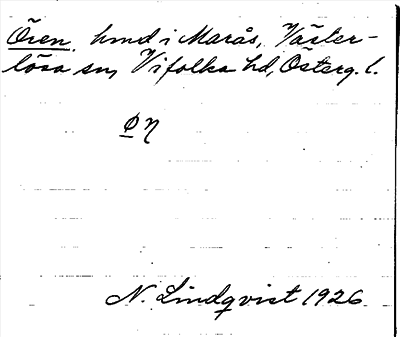 Ören, hmd i Marås, Väster-
lösa sn, Vifolka hd, Österg. l.
ØN
N. Lindqvist 1926